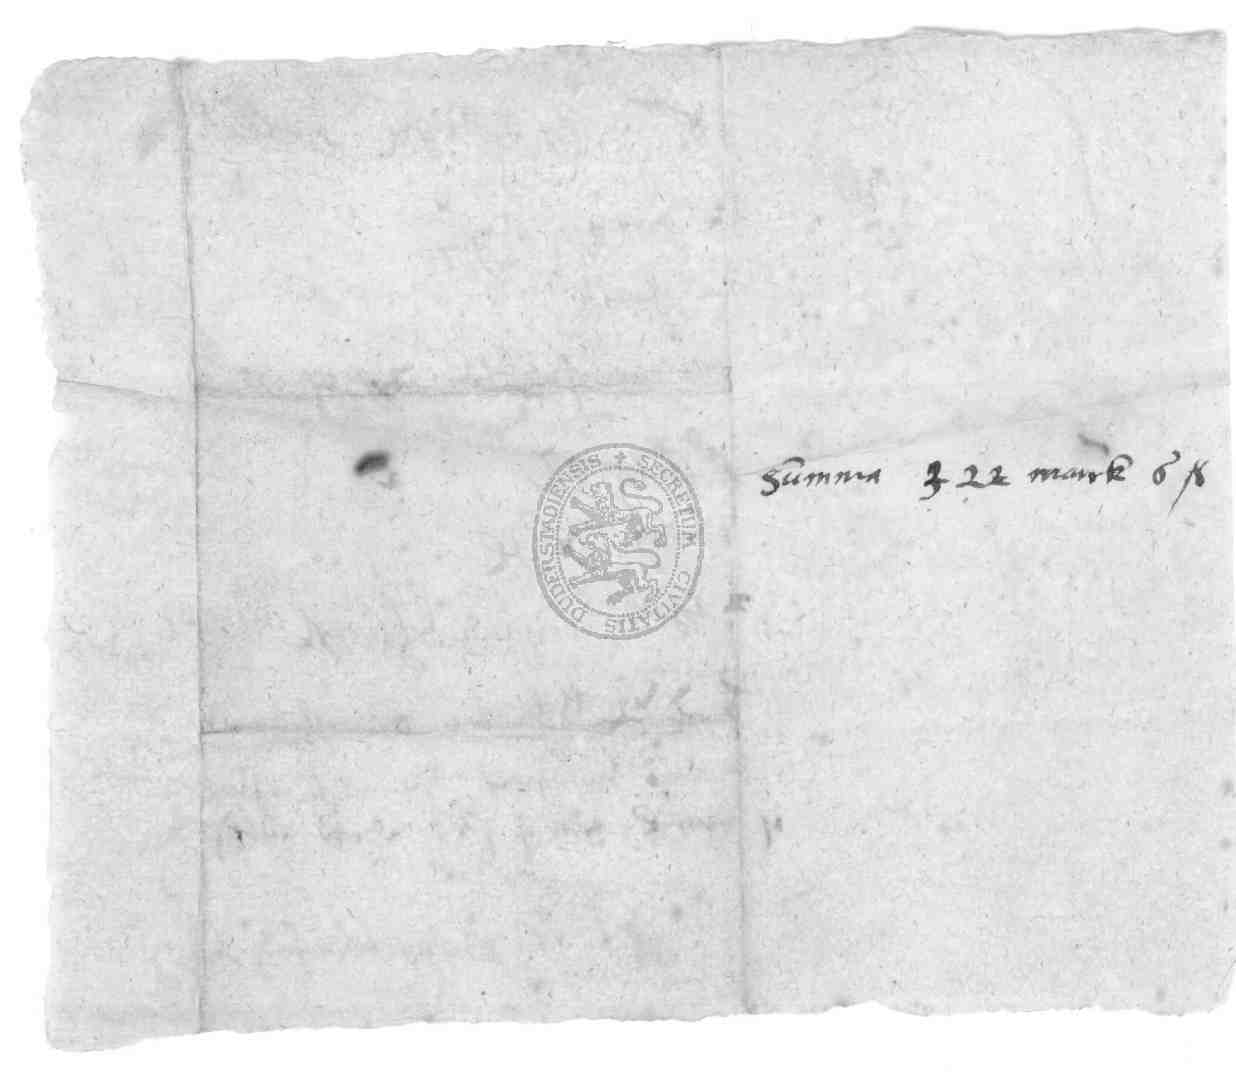 Summa 322 marck 6 ß
SECRETUM CIVITATIS DUDERSTADIENSIS